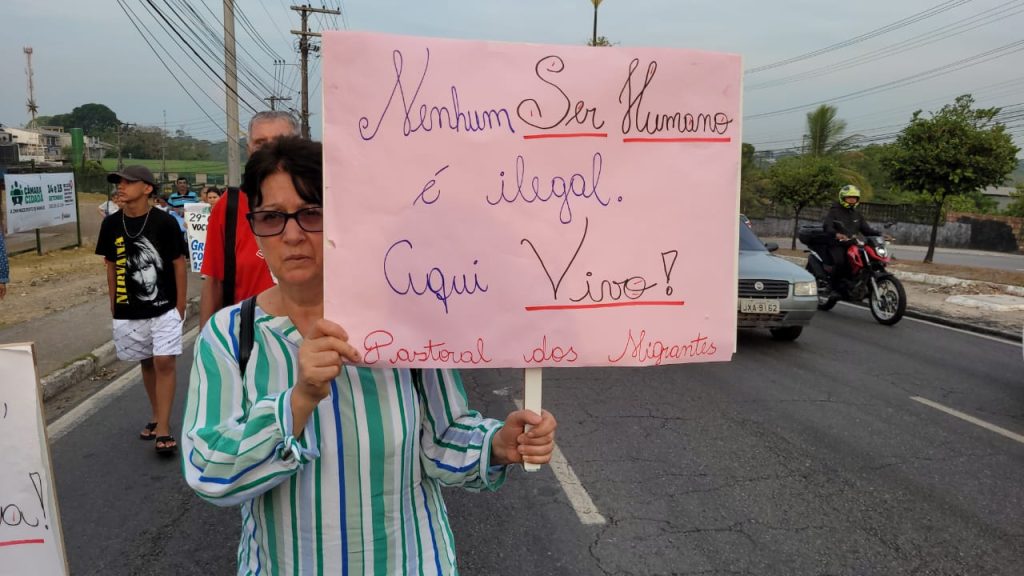 Nenhum Ser Humano
é ilegal.
Aqui Vivo!
Pastoral dos Migrantes
CÂMARA
CIDADÃ
14 e 15
NIRVANA
29º
JXA 9162